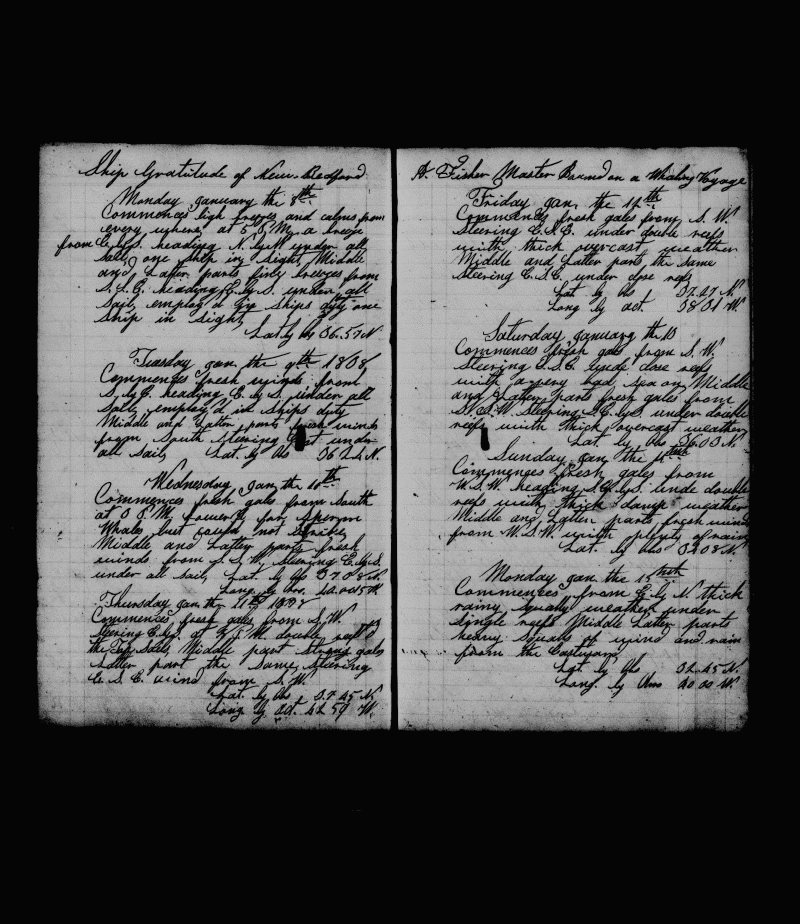 Ship Gratitude of New-Bedford
Monday January the 8th
Commences ligh breezes and calms from
every where at 5 P.M. a breeze
from E.by.S. heading N.by.E under all
Sail, one ship in sight, Middle
and Latter parts fine breezes from
S.S.E. heading E.by.S. under all
sail, employ'd in ships duty one
ship in sight
Lat by Obs 36.57 N
Tuesday Jan. the 9th
Commences fresh winds from
S.by.E. heading E.by.S. under all
Sail, employ'd in ships duty
Middle and Latter parts fresh winds
from South Steering East under
all sail Lat. by Obs 36 22 N.
Wednesday Jan the 10th
Commences fresh gales from South
at 3 P.M. lowered for Sperm
Whales but could not strike
Middle and Latter parts fresh
winds from S.S.W. Steering E.by.S.
under all sail Lat. by Obs 37 08 N.
Long by
Thursday Jan the 11th
Commences fresh gales from S.W.
Steering E.by. at P.M. double reef'd
the Top Sails Middle part Strong gales
Latter part the Same, Steering
E.S.E. wind from S.W.
Lat. by Obs 37 45 N
Long by act. 42 59 W.
A. Fisher Master Bound on a Whaling Voyage
Friday Jan. the 12th
Commences fresh gales from S.W.
Steering E.S.E. under double reefs
with thick overcast weather
Middle and Latter parts the same
Steering E.S.E. under close reefs
Lat by Obs 37.27 N
Long by act. 38 31 W.
Saturday January the 13
Commences fresh gales from S.W.
Steering E.S.E. under close reefs
with a very bad sea on Middle
and Latter parts fresh gales from
S.S.W. Steering S.E.by.S. under double
reefs with thick overcast weather
Lat. by Obs 36.00 N.
Sunday Jan. the 14teeth
Commences fresh gales from
W.S.W. heading S.E.by.S. unde double
reefs with thick damp weather
Middle and Latter parts fresh winds
from W.S.W. with plenty of rain
Lat. by Obs 34 08 N.
Monday Jan. the 15
Commences from E.by.N thick
rainy squaly weather under
single reefs Middle Latter parts
heavy squals of wind and rain
from the Eastward
Lat. by Obs 32.45 N.
Long. by 40 00 W.